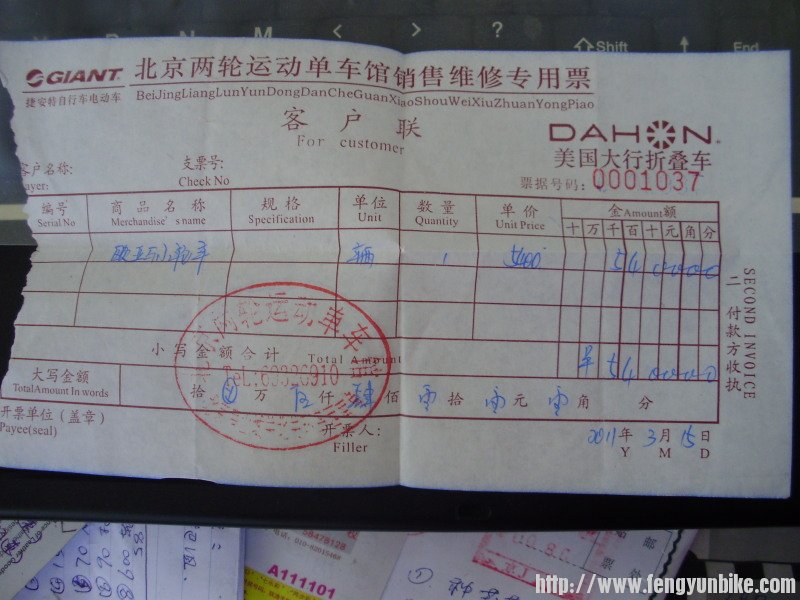 < > ?
Shift
End
GIANT 北京两轮运动单车馆销售维修专用票
捷安特自行车电动车 BeiJingLiangLunYunDongDanCheGuanXiaoShouWeiXiuZhuanYongPiao
客户联
For customer
DAHON
美国大行折叠车
客户名称: 支票号:
ayer: Check No
票据号码: 0001037
编号 商品名称 规格 单位 数量 单价 金Amount额
Serial No Merchandise's name Specification Unit Quantity Unit Price 十 万 千 百 十 元 角 分
欧亚马小轮车 辆 1 5400 5 4 0 0 0 0
小写金额合计 Total Amount ¥ 5 4 0 0 0 0
大写金额
TotalAmount In words
拾 万 伍 仟 肆 佰 零 拾 零 元 零 角 分
开票单位(盖章) 开票人:
Payee(seal) Filler
2011年 3月 15日
Y M D
两轮运动单车
TEL:63326910
二 付款方收执
SECOND INVOICE
58428128
010-82015468
A111101
http://www.fengyunbike.com